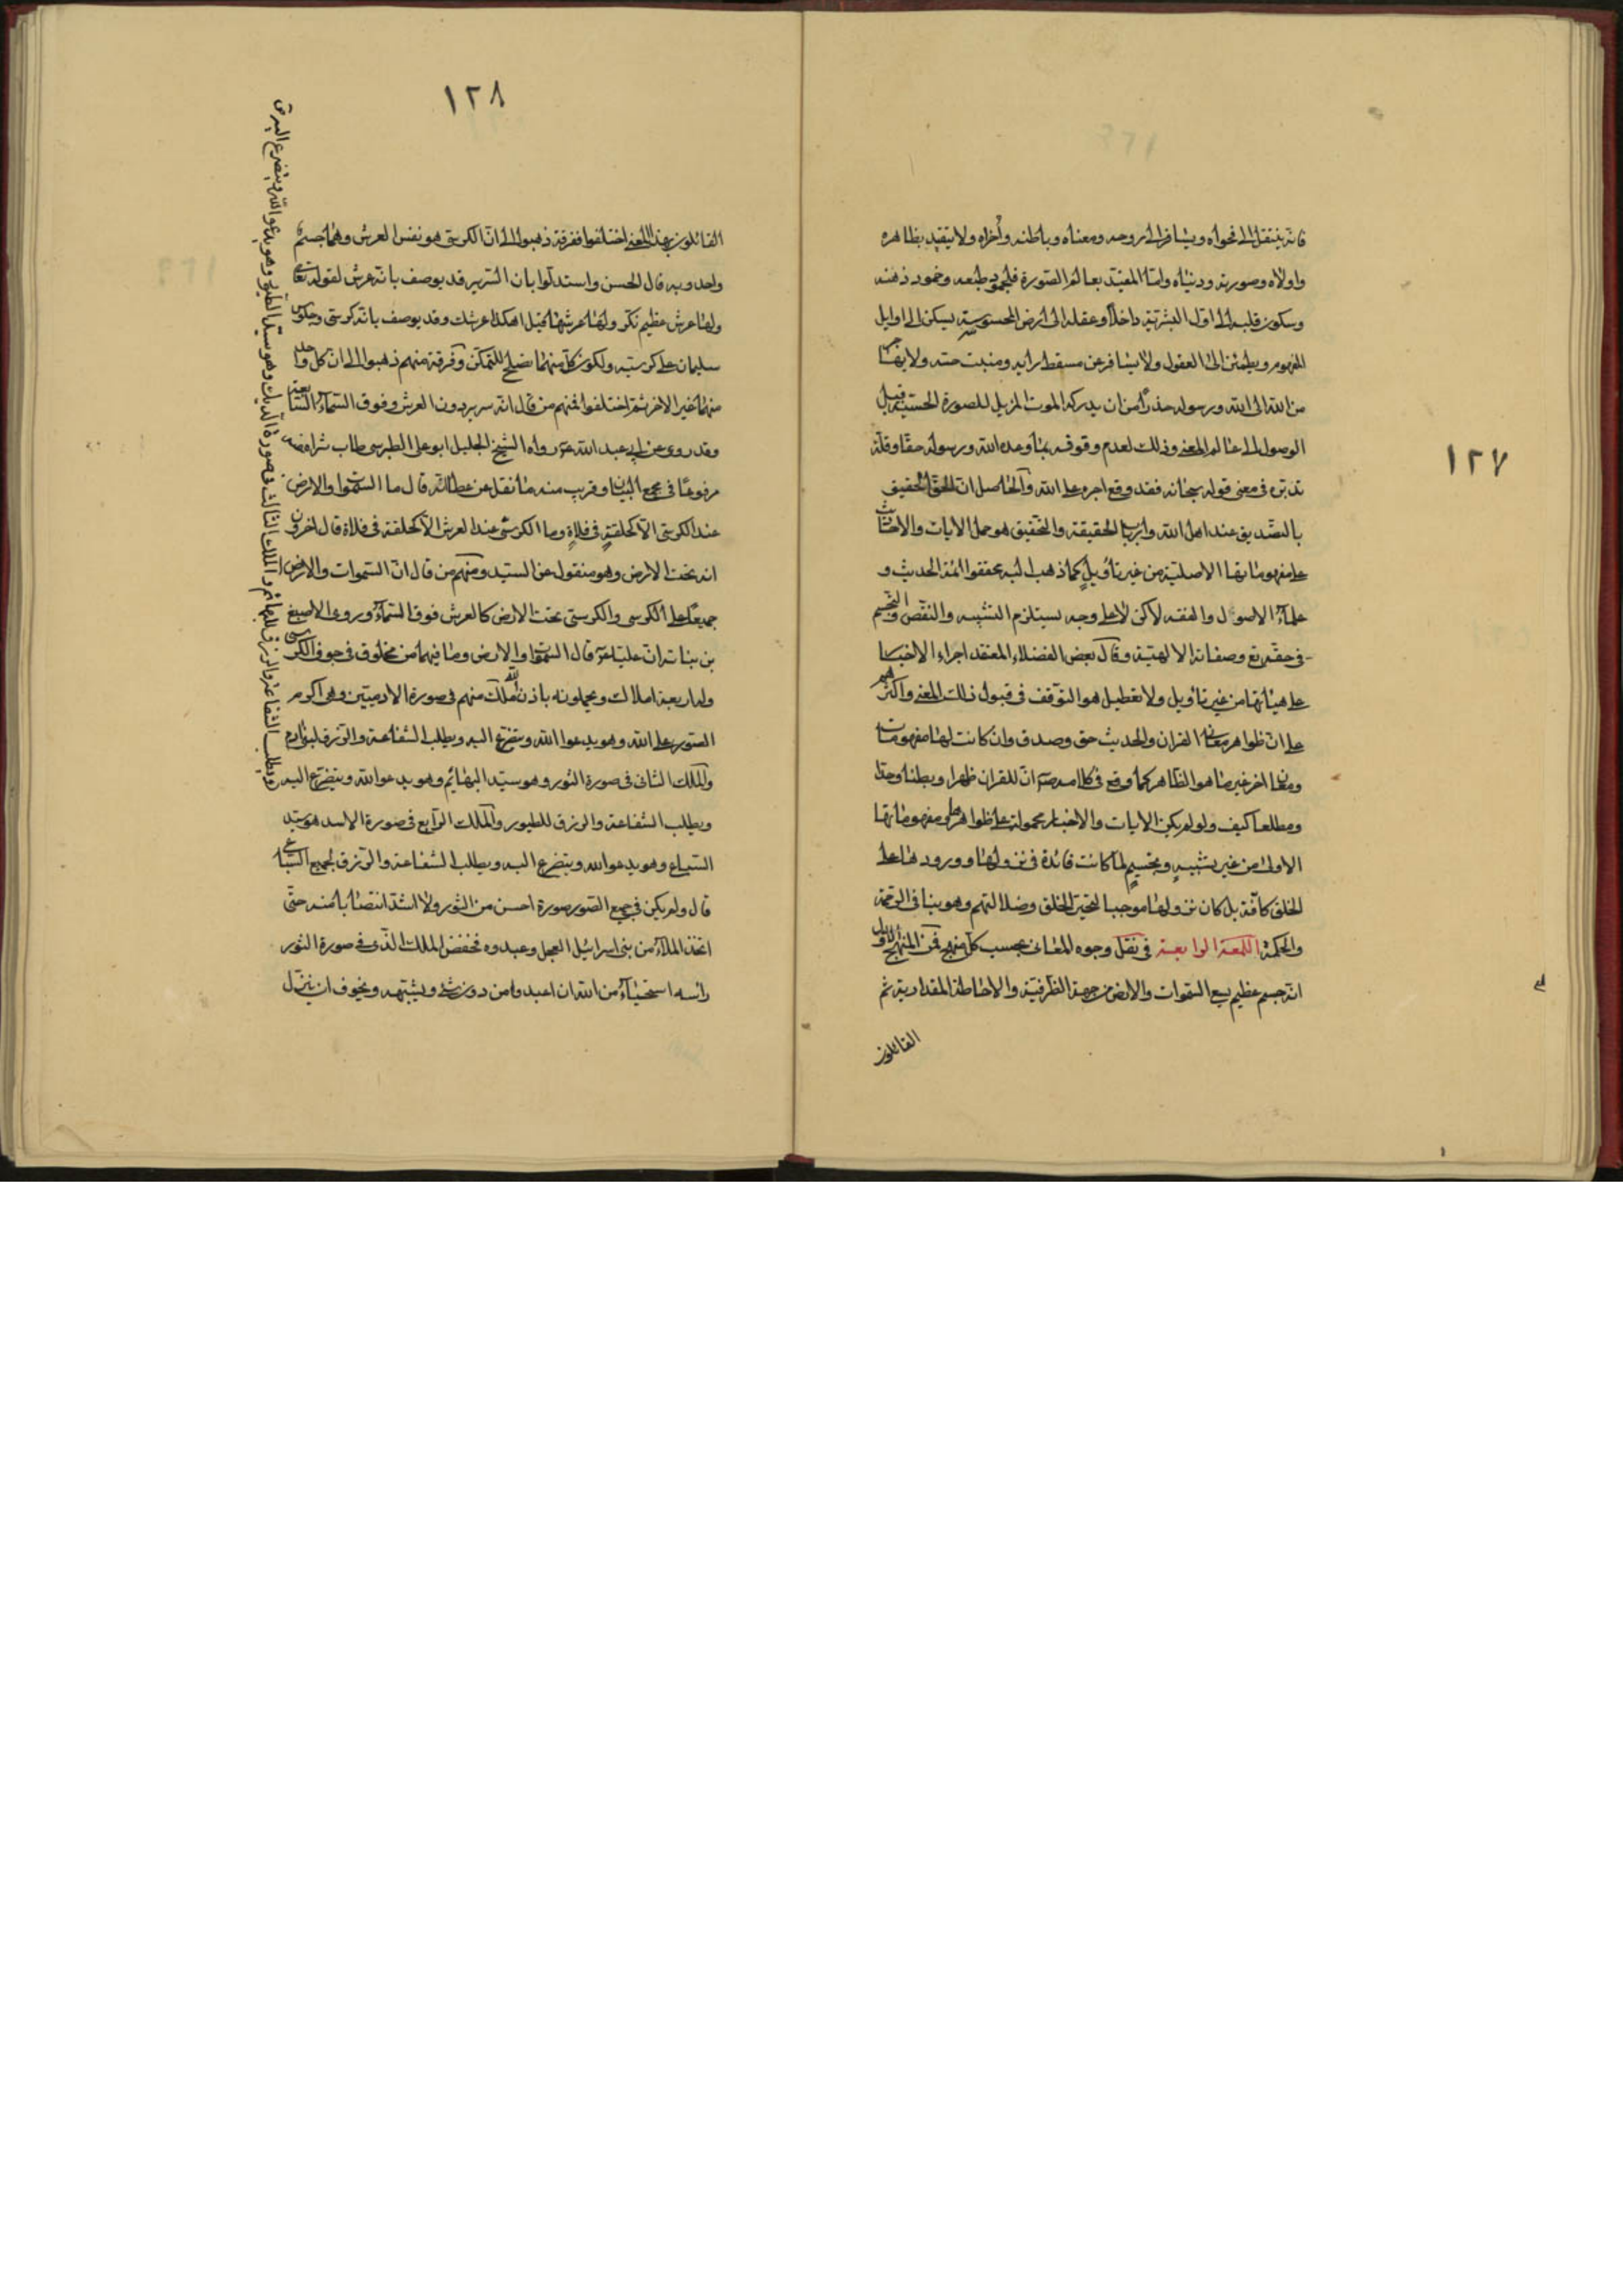 ١٢٧
فانه ينتقل الى فحواه ويسافر الى روحه ومعناه وباطنه واخراه ولا يتقيد بظاهره
واولاه وصورته ودنياه واما المقيد بعالم الصورة فلجمود طبعه وخمود ذهنه
وسكون قلبه الى اول البشرية داخلا وعقله الى ارض المحسوسية يسكن الى اوايل
المفهوم ويطمئن الى العقول ولا يسافر عن مسقط راسه ومنبت حسه ولا يهاجر
من الله الى الله ورسوله حذرا من ان يدركه الموت المزيل للصورة الحسية قبل
الوصول الى عالم المعنى وذلك لعدم وقوفه بما وعده الله ورسوله حقا وقلة
تدبره فى معنى قوله سبحانه فقد وقع اجره على الله والحاصل ان الحق الحقيق
بالتصديق عند اهل الله وارباب الحقيقة والتحقيق هو حمل الايات والاحاديث
على مفهوماتها الاصلية من غير تأويل كما ذهب اليه محققوا ائمة الحديث و
علمآء الاصول والفقه لاكن لا على وجه يستلزم التشبيه والنقص والتجسيم
فى حقه تع وصفاته الالهية وقال بعض الفضلاء المعتقد اجراء الاخبار
على هيأتها من غير تأويل ولا تعطيل هو التوقف فى قبول ذلك المعنى واكثرهم
على ان ظواهر معانى القران والحديث حق وصدق وان كانت لها مفهومات
ومعان اخر غير ما هو الظاهر كما وقع فى كلامه ص ان للقران ظهرا وبطنا وحدا
ومطلعا كيف ولو لم يكن الايات والاخبار محمولة على ظواهرها ومفهوماتها
الاولى من غير تشبيه وتجسيم لما كانت فائدة فى نزولها وورودها على
الخلق كافة بل كان نزولها موجبا لتحير الخلق وضلالتهم وهو ينافى الرحمة
والحكمة اللمعة الرابعة فى نقل وجوه المعانى بحسب كل منهج فمن المنهج الاول
انه جسم عظيم يسع السموات والارض من جهة الظرفية والاحاطة المقدارية ثم
القائلون
١٢٨
القائلون بهذا المعنى اختلفوا ففرقة ذهبوا الى ان الكرسى هو نفس العرش وهما جسم
واحد وبه قال الحسن واستدلوا بان السرير قد يوصف بانه عرش لقوله تعالى
ولها عرش عظيم نكروا لها عرشها قيل اهكذا عرشك وقد يوصف بانه كرسى
سليمان على كرسيه ولكون كل منهما يصلح للتمكن وفرقة منهم ذهبوا الى ان كل واحد
منهما غير الاخر ثم اختلفوا فمنهم من قال انه سرير دون العرش وفوق السمآء السابعة
وقد روى عن ابى عبد الله ع رواه الشيخ الجليل ابو على الطبرسى طاب ثراه
مرفوعا فى مجمع البيان وقريب منه ما نقل عن عطا انه قال ما السموات والارض
عند الكرسى الا كحلقة فى فلاة وما الكرسى عند العرش الا كحلقة فى فلاة قال اخرون
انه تحت الارض وهو منقول عن السيد ومنهم من قال ان السموات والارض
جميعا على الكرسى والكرسى تحت الارض كالعرش فوق السمآء وروى الاصبغ
بن نباته ان عليا ع قال السموات والارض وما فيهما من مخلوق فى جوف الكرسى
وله اربعة املاك ويحملونه باذن الله ملك منهم فى صورة الادميين وهى اكرم
الصور على الله وهو يدعوا الله ويتضرع اليه ويطلب الشفاعة والرزق لبنى ادم
والملك الثانى فى صورة الثور وهو سيد البهائم وهو يدعو الله ويتضرع اليه
ويطلب الشفاعة والرزق للبهائم والملك الثالث فى صورة الديك وهو سيد الطيور وهو يدعو الله ويتضرع اليه
ويطلب الشفاعة والرزق للطيور والملك الرابع فى صورة الاسد هو سيد
السباع وهو يدعو الله ويتضرع اليه ويطلب الشفاعة والرزق لجميع السباع
قال ولم يكن فى جميع الصور صورة احسن من الثور ولا اشد انتصابا منه حتى
اتخذ الملاء من بنى اسرائيل العجل وعبدوه فخفض الملك الذى فى صورة الثور
راسه استحيآء من الله ان اعبد وا من دون شئ ويشبهه ويخوف ان ينزل